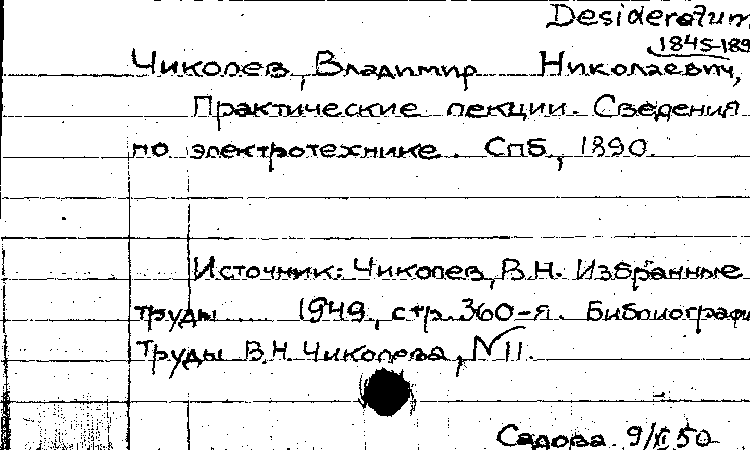 Desideratum
1845-189
Чиколев, Владимир Николаевич,
Практические лекции. Сведения
по электротехнике. СПБ, 1890.
Источник: Чиколев, В.Н. Избранные
труды .... 1949, стр. 360-я. Библиографи
Труды В.Н. Чиколева, N11.
Садова 9/XI 50